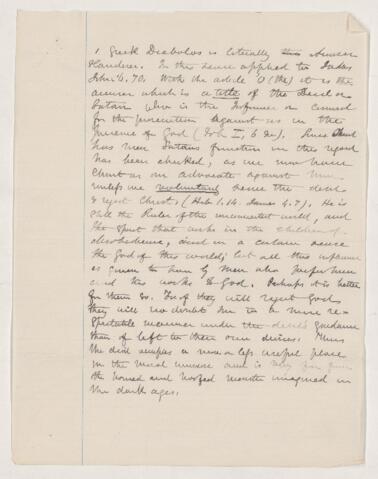 1 Greek Diabolos is literally Accuser
slanderer. In this sense applied to Judas
John 6.70. With the article O (the) it is the
accuser which is a title of the Devil or
Satan who is the Informer or Counsel
for the prosecution against us in the
presence of God (Job I, 6 &c). Since
has risen Satans function in this regard
has been checked, as we now have
Christ as our advocate against him
unless we voluntarily serve the devil
& reject Christ. (Heb. 2.14. James 4.7). He is
still the Ruler of the unconverted world, and
the spirit that works in the children of
disobedience, and in a certain sense
the God of this world; but all this influence
is given to him by Men who prefer him
and his works to God. Perhaps it is better
for them so. For if they will reject God
they will no doubt sin in a more re-
spectable manner under the devil's guidance
than if left to their own devices. Thus
the devil occupies a more or less useful place
in the moral universe and is very far from
the horned and hoofed monster imagined in
the dark ages.